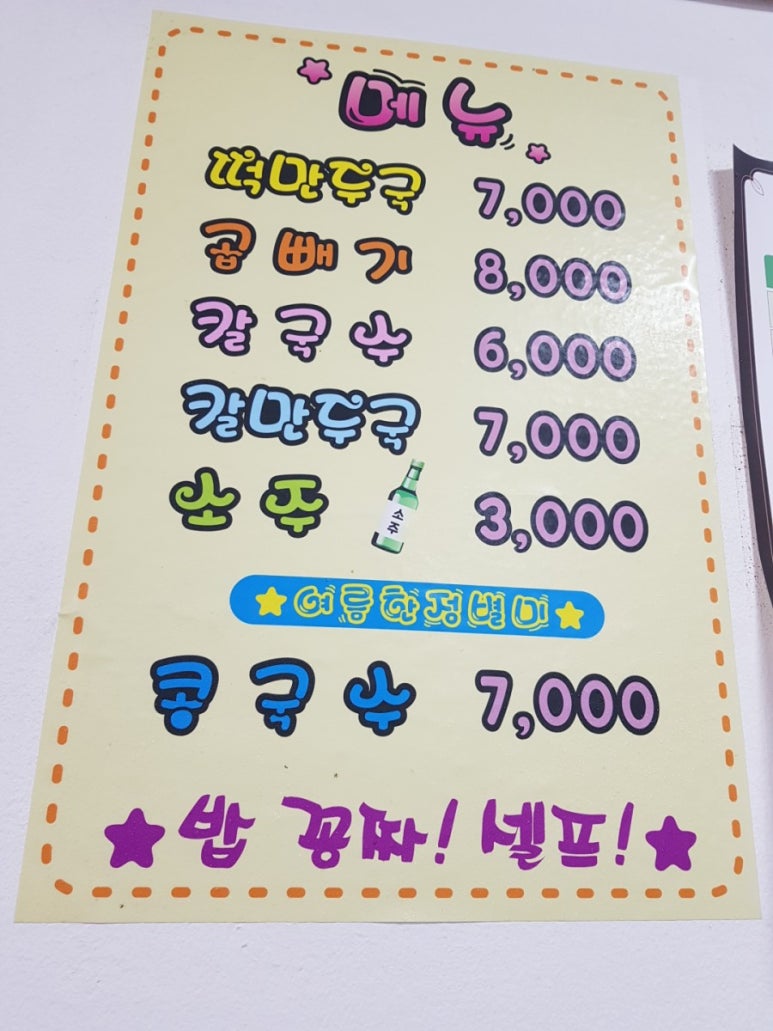 메뉴
떡만두국 7,000
곱빼기 8,000
칼국수 6,000
칼만두국 7,000
소주 소주 3,000
여름한정별미
콩국수 7,000
밥 공짜! 셀프!